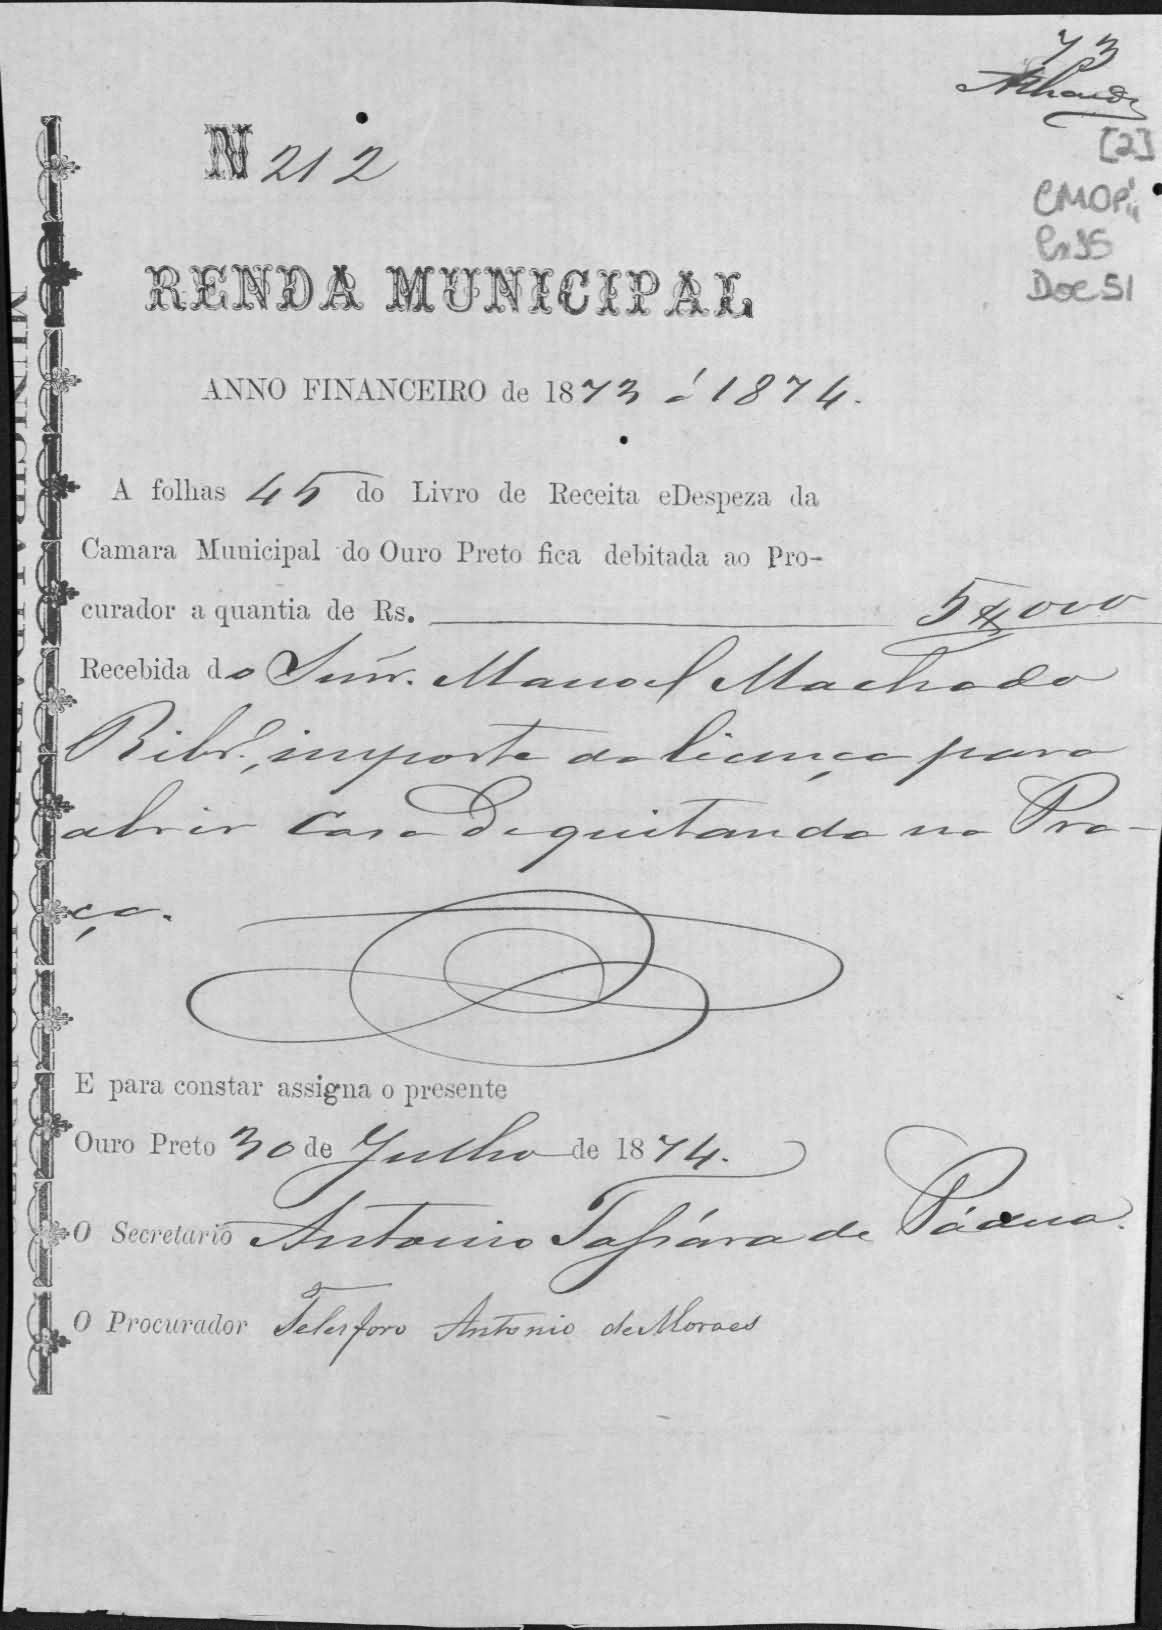 73
[2]
CMOP
Cx35
Doc 51
N 212
RENDA MUNICIPAL
ANNO FINANCEIRO de 1873 á 1874.
A folhas 45 do Livro de Receita eDespeza da
Camara Municipal do Ouro Preto fica debitada ao Pro-
curador a quantia de Rs. 5$000
Recebida do Snr. Manoel Machado
Ribr.o, importe da licença para
abrir casa de quitanda na Pra-
ça.
E para constar assigna o presente
Ouro Preto 30 de Julho de 1874.
O Secretario Antonio Tassára de Pádua.
O Procurador Telesforo Antonio de Moraes